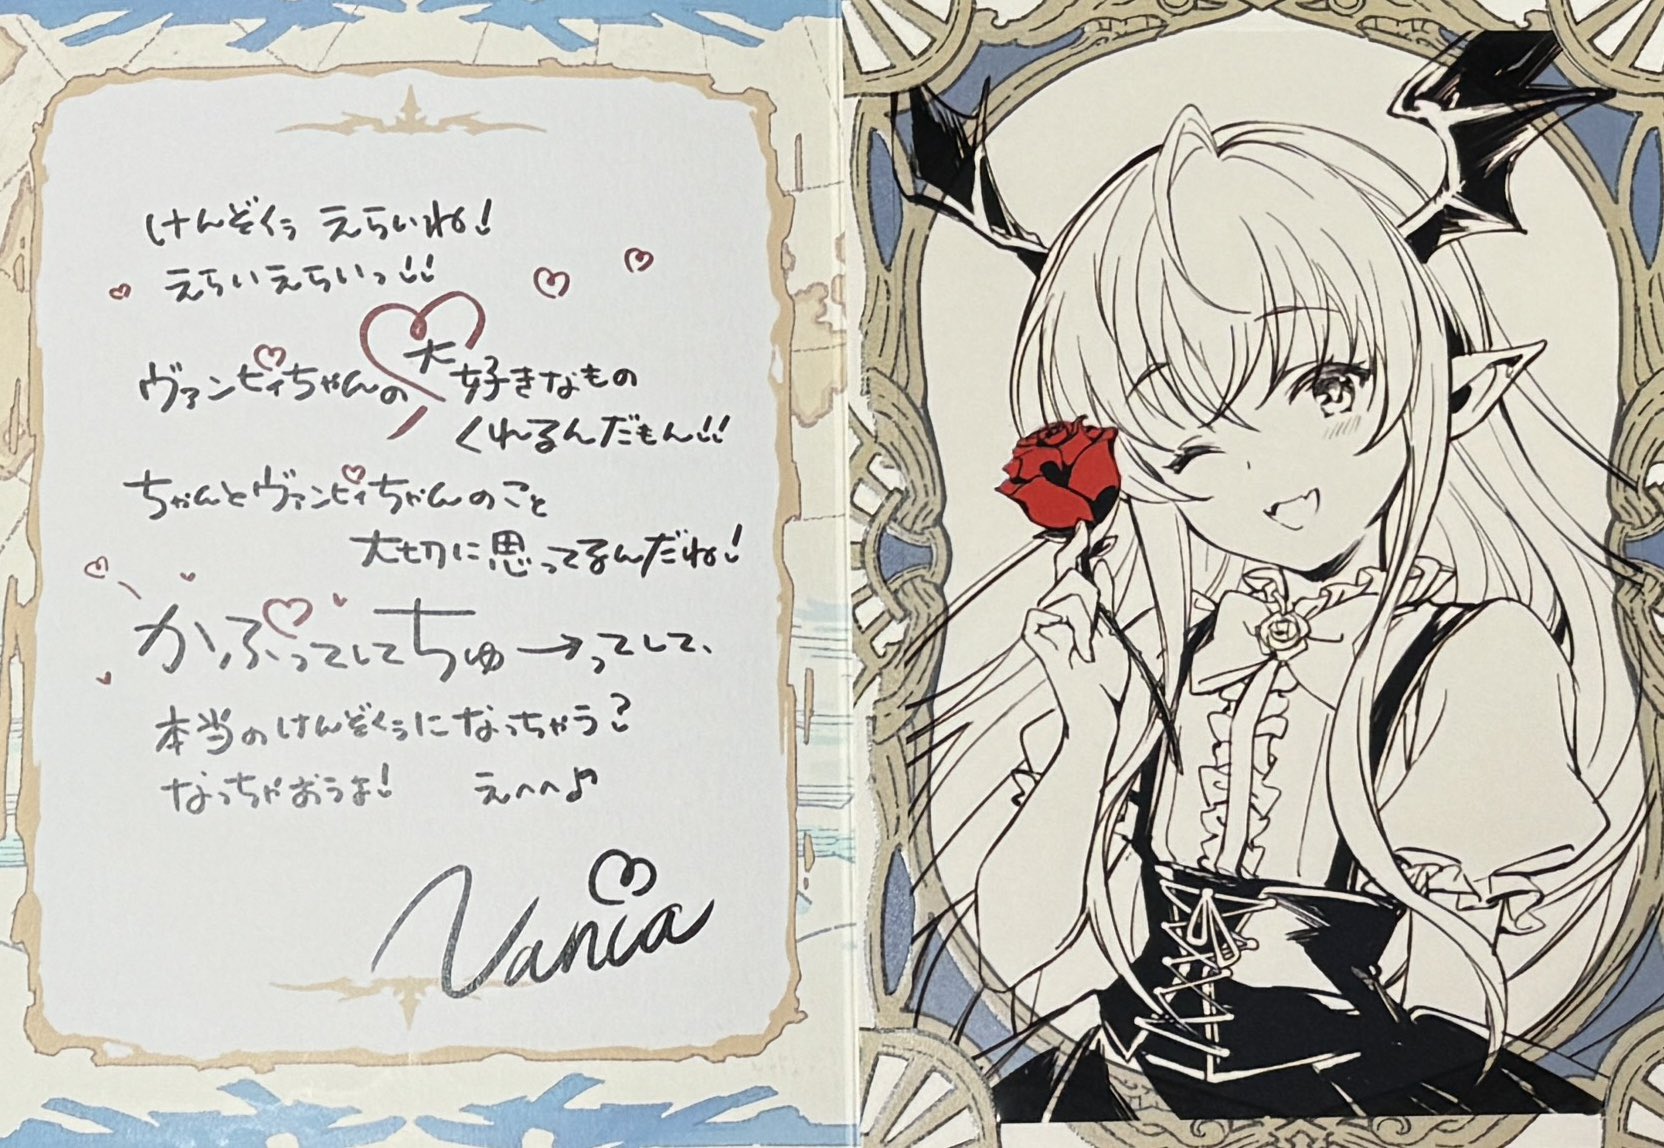 けんぞくぅ えらいね!
えらいえらいっ!!
ヴァンピィちゃんの大好きなもの
くれるんだもん!!
ちゃんとヴァンピィちゃんのこと
大切に思ってるんだね!
かぷってしてちゅーってして、
本当のけんぞくぅになっちゃう?
なっちゃおうよ! えへへ♪
Vania